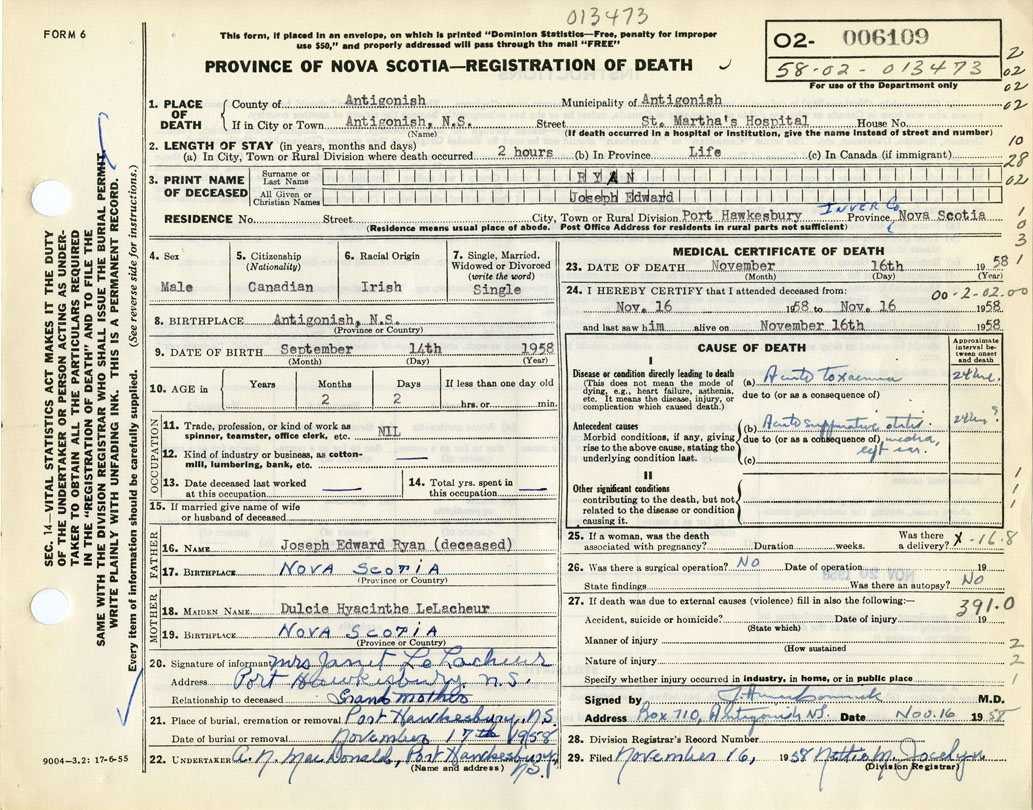 013473
FORM 6
This form, if placed in an envelope, on which is printed "Dominion Statistics—Free, penalty for improper
use $50," and properly addressed will pass through the mail "FREE"
02- 006109
58-02-013473
For use of the Department only
PROVINCE OF NOVA SCOTIA—REGISTRATION OF DEATH
2
02
02
02
10
28
02
1
0
3
1
SEC. 14—VITAL STATISTICS ACT MAKES IT THE DUTY
OF THE UNDERTAKER OR PERSON ACTING AS UNDER-
TAKER TO OBTAIN ALL THE PARTICULARS REQUIRED
IN THE "REGISTRATION OF DEATH" AND TO FILE THE
SAME WITH THE DIVISION REGISTRAR WHO SHALL ISSUE THE BURIAL PERMIT.
WRITE PLAINLY WITH UNFADING INK. THIS IS A PERMANENT RECORD.
Every item of information should be carefully supplied. (See reverse side for instructions.)
1. PLACE OF DEATH
County of Antigonish Municipality of Antigonish
If in City or Town Antigonish, N.S. Street St. Martha's Hospital House No.
(Name) (If death occurred in a hospital or institution, give the name instead of street and number)
2. LENGTH OF STAY (in years, months and days)
(a) In City, Town or Rural Division where death occurred 2 hours (b) In Province Life (c) In Canada (if immigrant)
3. PRINT NAME OF DECEASED
Surname or Last Name RYAN
All Given or Christian Names Joseph Edward
INVER Co
RESIDENCE No. Street City, Town or Rural Division Port Hawkesbury Province Nova Scotia
(Residence means usual place of abode. Post Office Address for residents in rural parts not sufficient)
4. Sex
Male
5. Citizenship
(Nationality)
Canadian
6. Racial Origin
Irish
7. Single, Married,
Widowed or Divorced
(write the word)
Single
8. BIRTHPLACE Antigonish, N.S.
(Province or Country)
9. DATE OF BIRTH September 14th 1958
(Month) (Day) (Year)
10. AGE in Years Months Days If less than one day old
2 2 hrs. or min.
OCCUPATION
11. Trade, profession, or kind of work as
spinner, teamster, office clerk, etc. NIL
12. Kind of industry or business, as cotton-
mill, lumbering, bank, etc.
13. Date deceased last worked
at this occupation
14. Total yrs. spent in
this occupation
15. If married give name of wife
or husband of deceased
FATHER
16. NAME Joseph Edward Ryan (deceased)
17. BIRTHPLACE NOVA SCOTIA
(Province or Country)
MOTHER
18. MAIDEN NAME Dulcie Hyacinthe LeLacheur
19. BIRTHPLACE NOVA SCOTIA
(Province or Country)
20. Signature of informant Mrs Janet LeLacheur
Address Port Hawkesbury, N.S.
Relationship to deceased Grandmother
21. Place of burial, cremation or removal Port Hawkesbury, N.S.
Date of burial or removal November 17th 1958
22. UNDERTAKER A. N. MacDonald, Port Hawkesbury, N.S.
(Name and address)
9004—3.2: 17-6-55
MEDICAL CERTIFICATE OF DEATH
23. DATE OF DEATH November 16th 1958
(Month) (Day) (Year)
24. I HEREBY CERTIFY that I attended deceased from: 00-2-02.00
Nov. 16 1958 to Nov. 16 1958
and last saw him alive on November 16th 1958
CAUSE OF DEATH
Approximate
interval be-
tween onset
and death
I
Disease or condition directly leading to death
(This does not mean the mode of
dying, e.g., heart failure, asthenia,
etc. It means the disease, injury, or
complication which caused death.)
(a) Acute toxaemia 24 hrs.
due to (or as a consequence of)
Antecedent causes
Morbid conditions, if any, giving
rise to the above cause, stating the
underlying condition last.
(b) Acute suppurative otitis 24 hrs?
due to (or as a consequence of) media,
(c)
II
Other significant conditions
contributing to the death, but not
related to the disease or condition
causing it.
1
1
1
25. If a woman, was the death
associated with pregnancy? Duration weeks. Was there
a delivery? X-16.8
26. Was there a surgical operation? NO Date of operation 19
State findings Was there an autopsy? No
27. If death was due to external causes (violence) fill in also the following:— 391.0
Accident, suicide or homicide? Date of injury 19
(State which)
Manner of injury
(How sustained
Nature of injury
Specify whether injury occurred in industry, in home, or in public place
2
2
1
Signed by M.D.
Address Box 710, Antigonish NS. Date Nov. 16 1958
28. Division Registrar's Record Number
29. Filed November 16, 1958 M. Jocelyn
(Division Registrar)